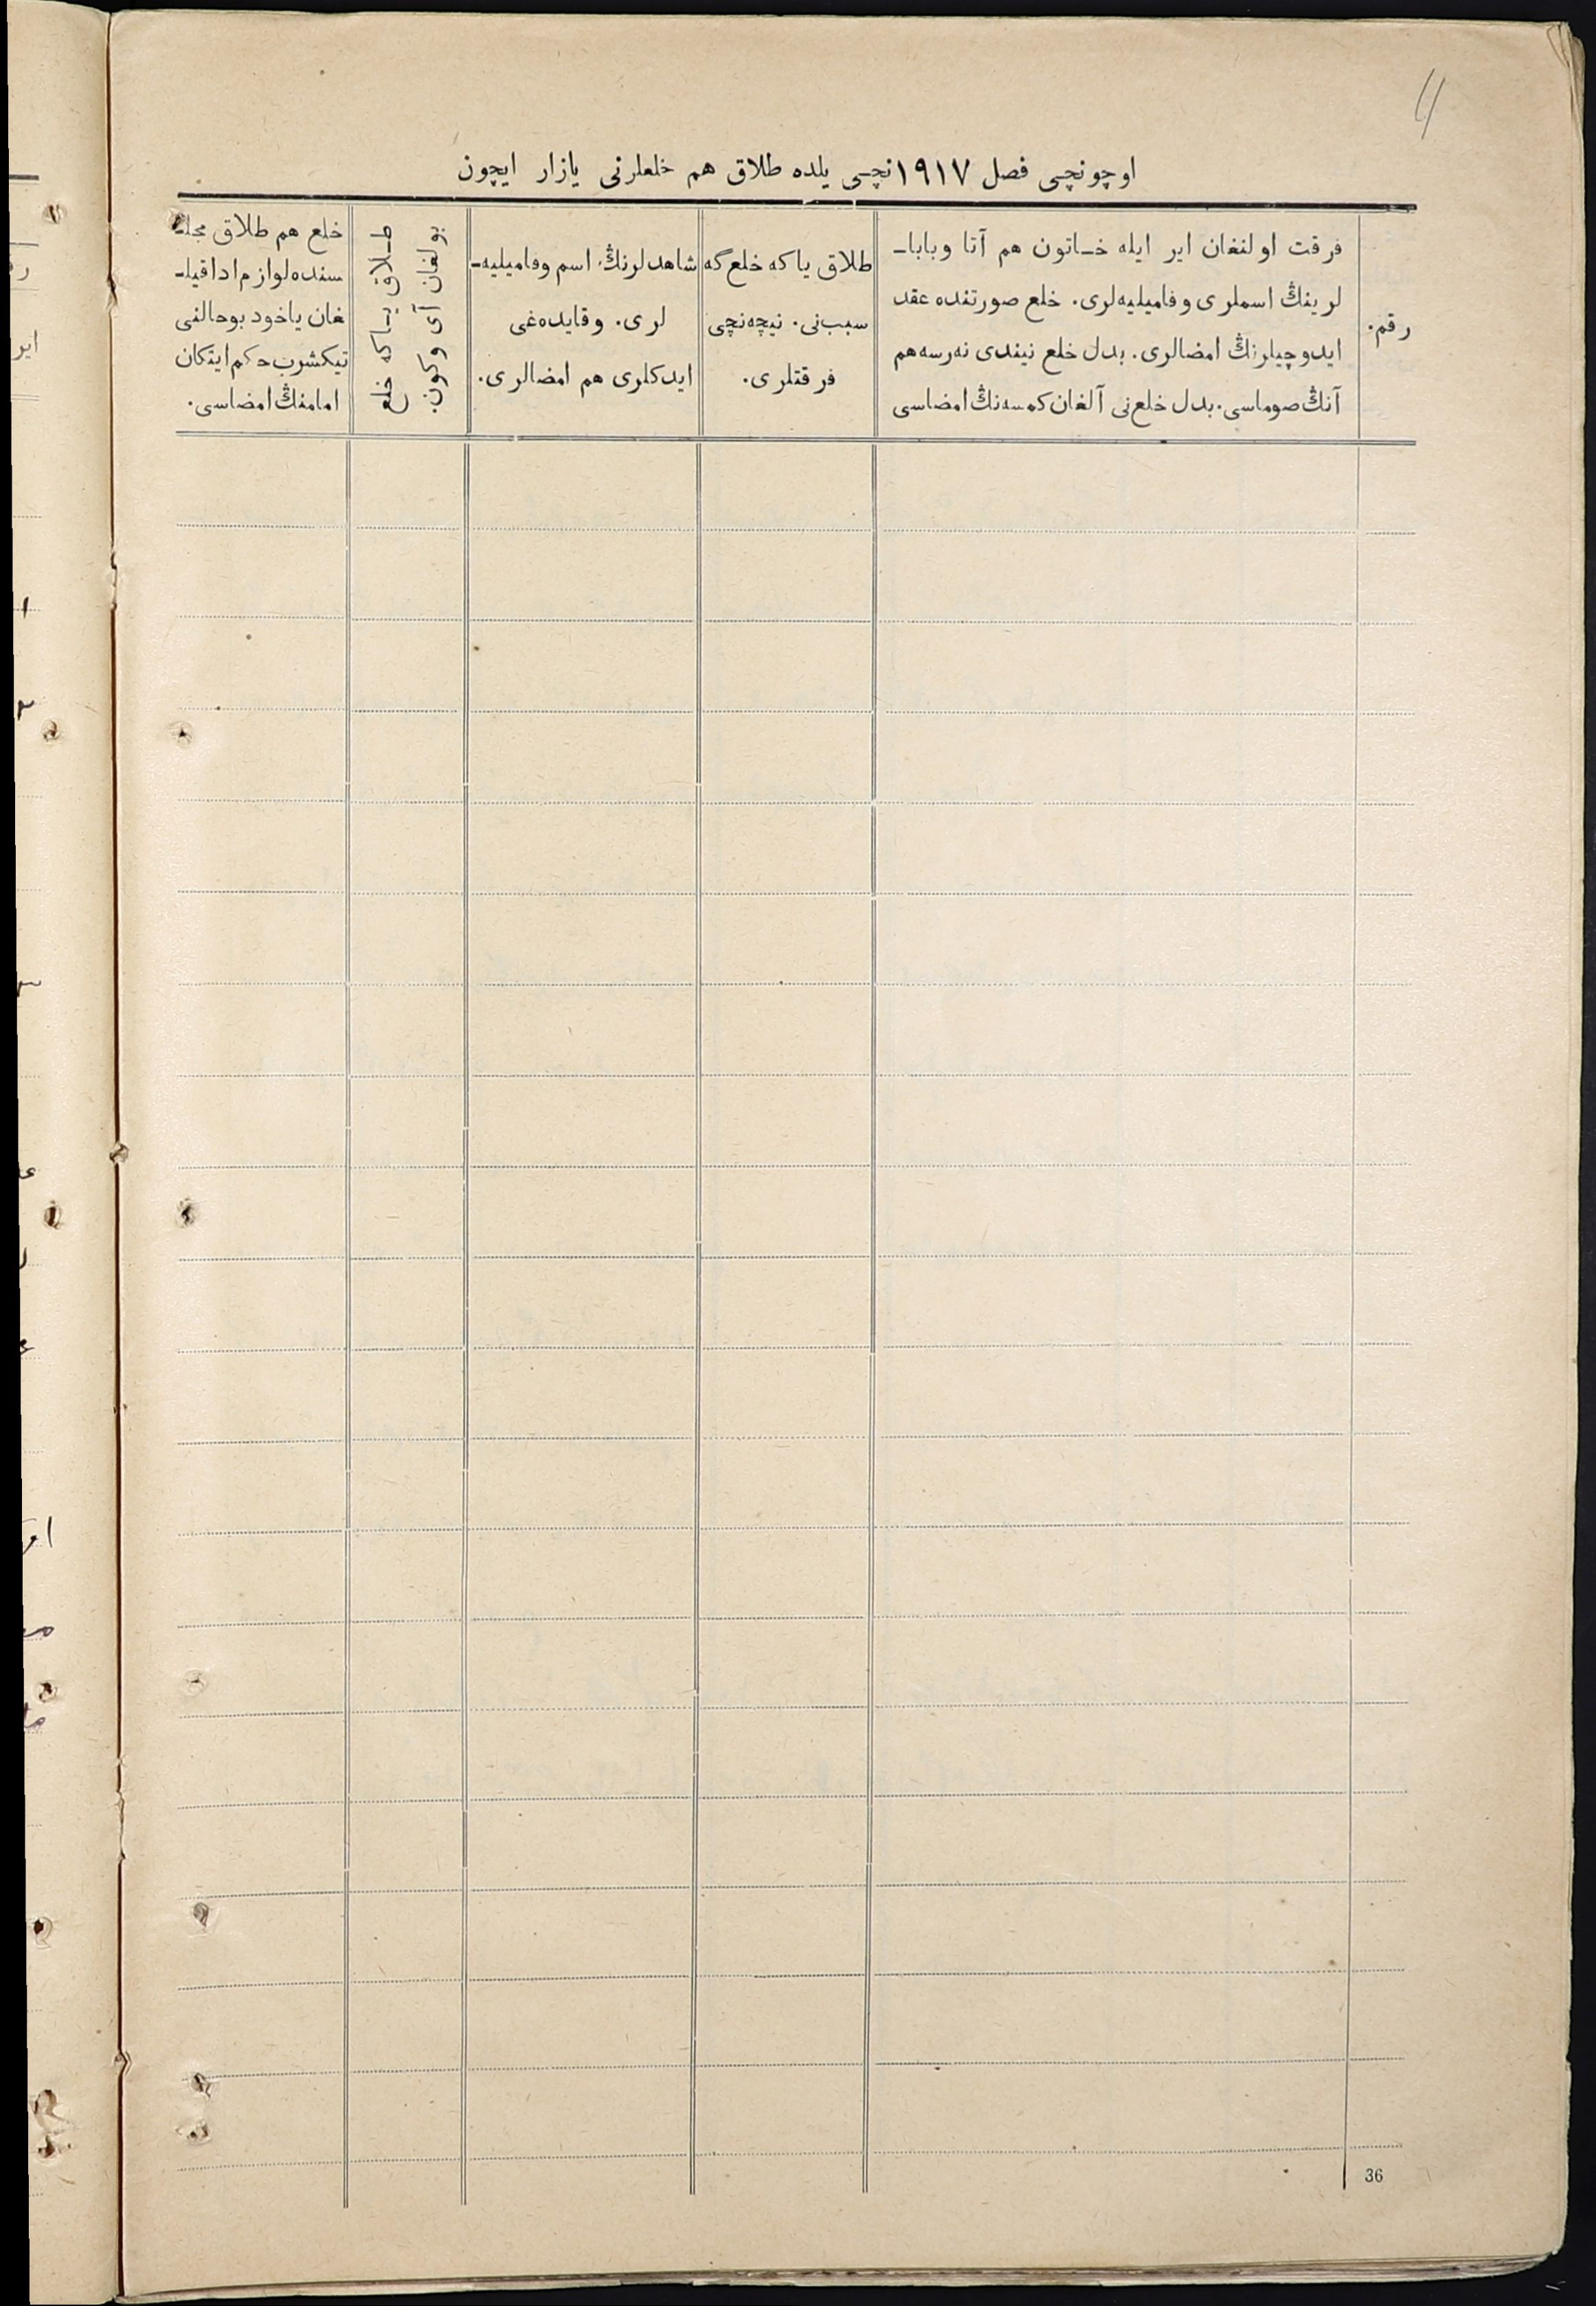 اوچونچی فصل ١٩١٧نچی یلده طلاق هم خلعلرنی یازار ایچون
رقم.
فرقت اولنغان ایر ایله خاتون هم آتا وبابا-
لرینڭ اسملری وفامیلیه‌لری. خلع صورتنده عقد
ایدوچیلرنڭ امضالری. بدل خلع نیندی نه‌رسه هم
آنڭ صوماسی. بدل خلع‌نی آلغان کمسه‌نڭ امضاسی
طلاق یاکه خلع‌گه
سبب‌نی. نیچه‌نچی
فرقتلری.
شاهدلرنڭ اسم وفامیلیه-
لری. وقایده‌غی
ایدکلری هم امضالری.
طلاق یاکه خلع
بولغان آی وکون.
خلع هم طلاق مجلـ
سنده لوازم ادا قیلـ
غان یاخود بوحالنی
تیکشرب حکم ایتکان
امامنڭ امضاسی.
36